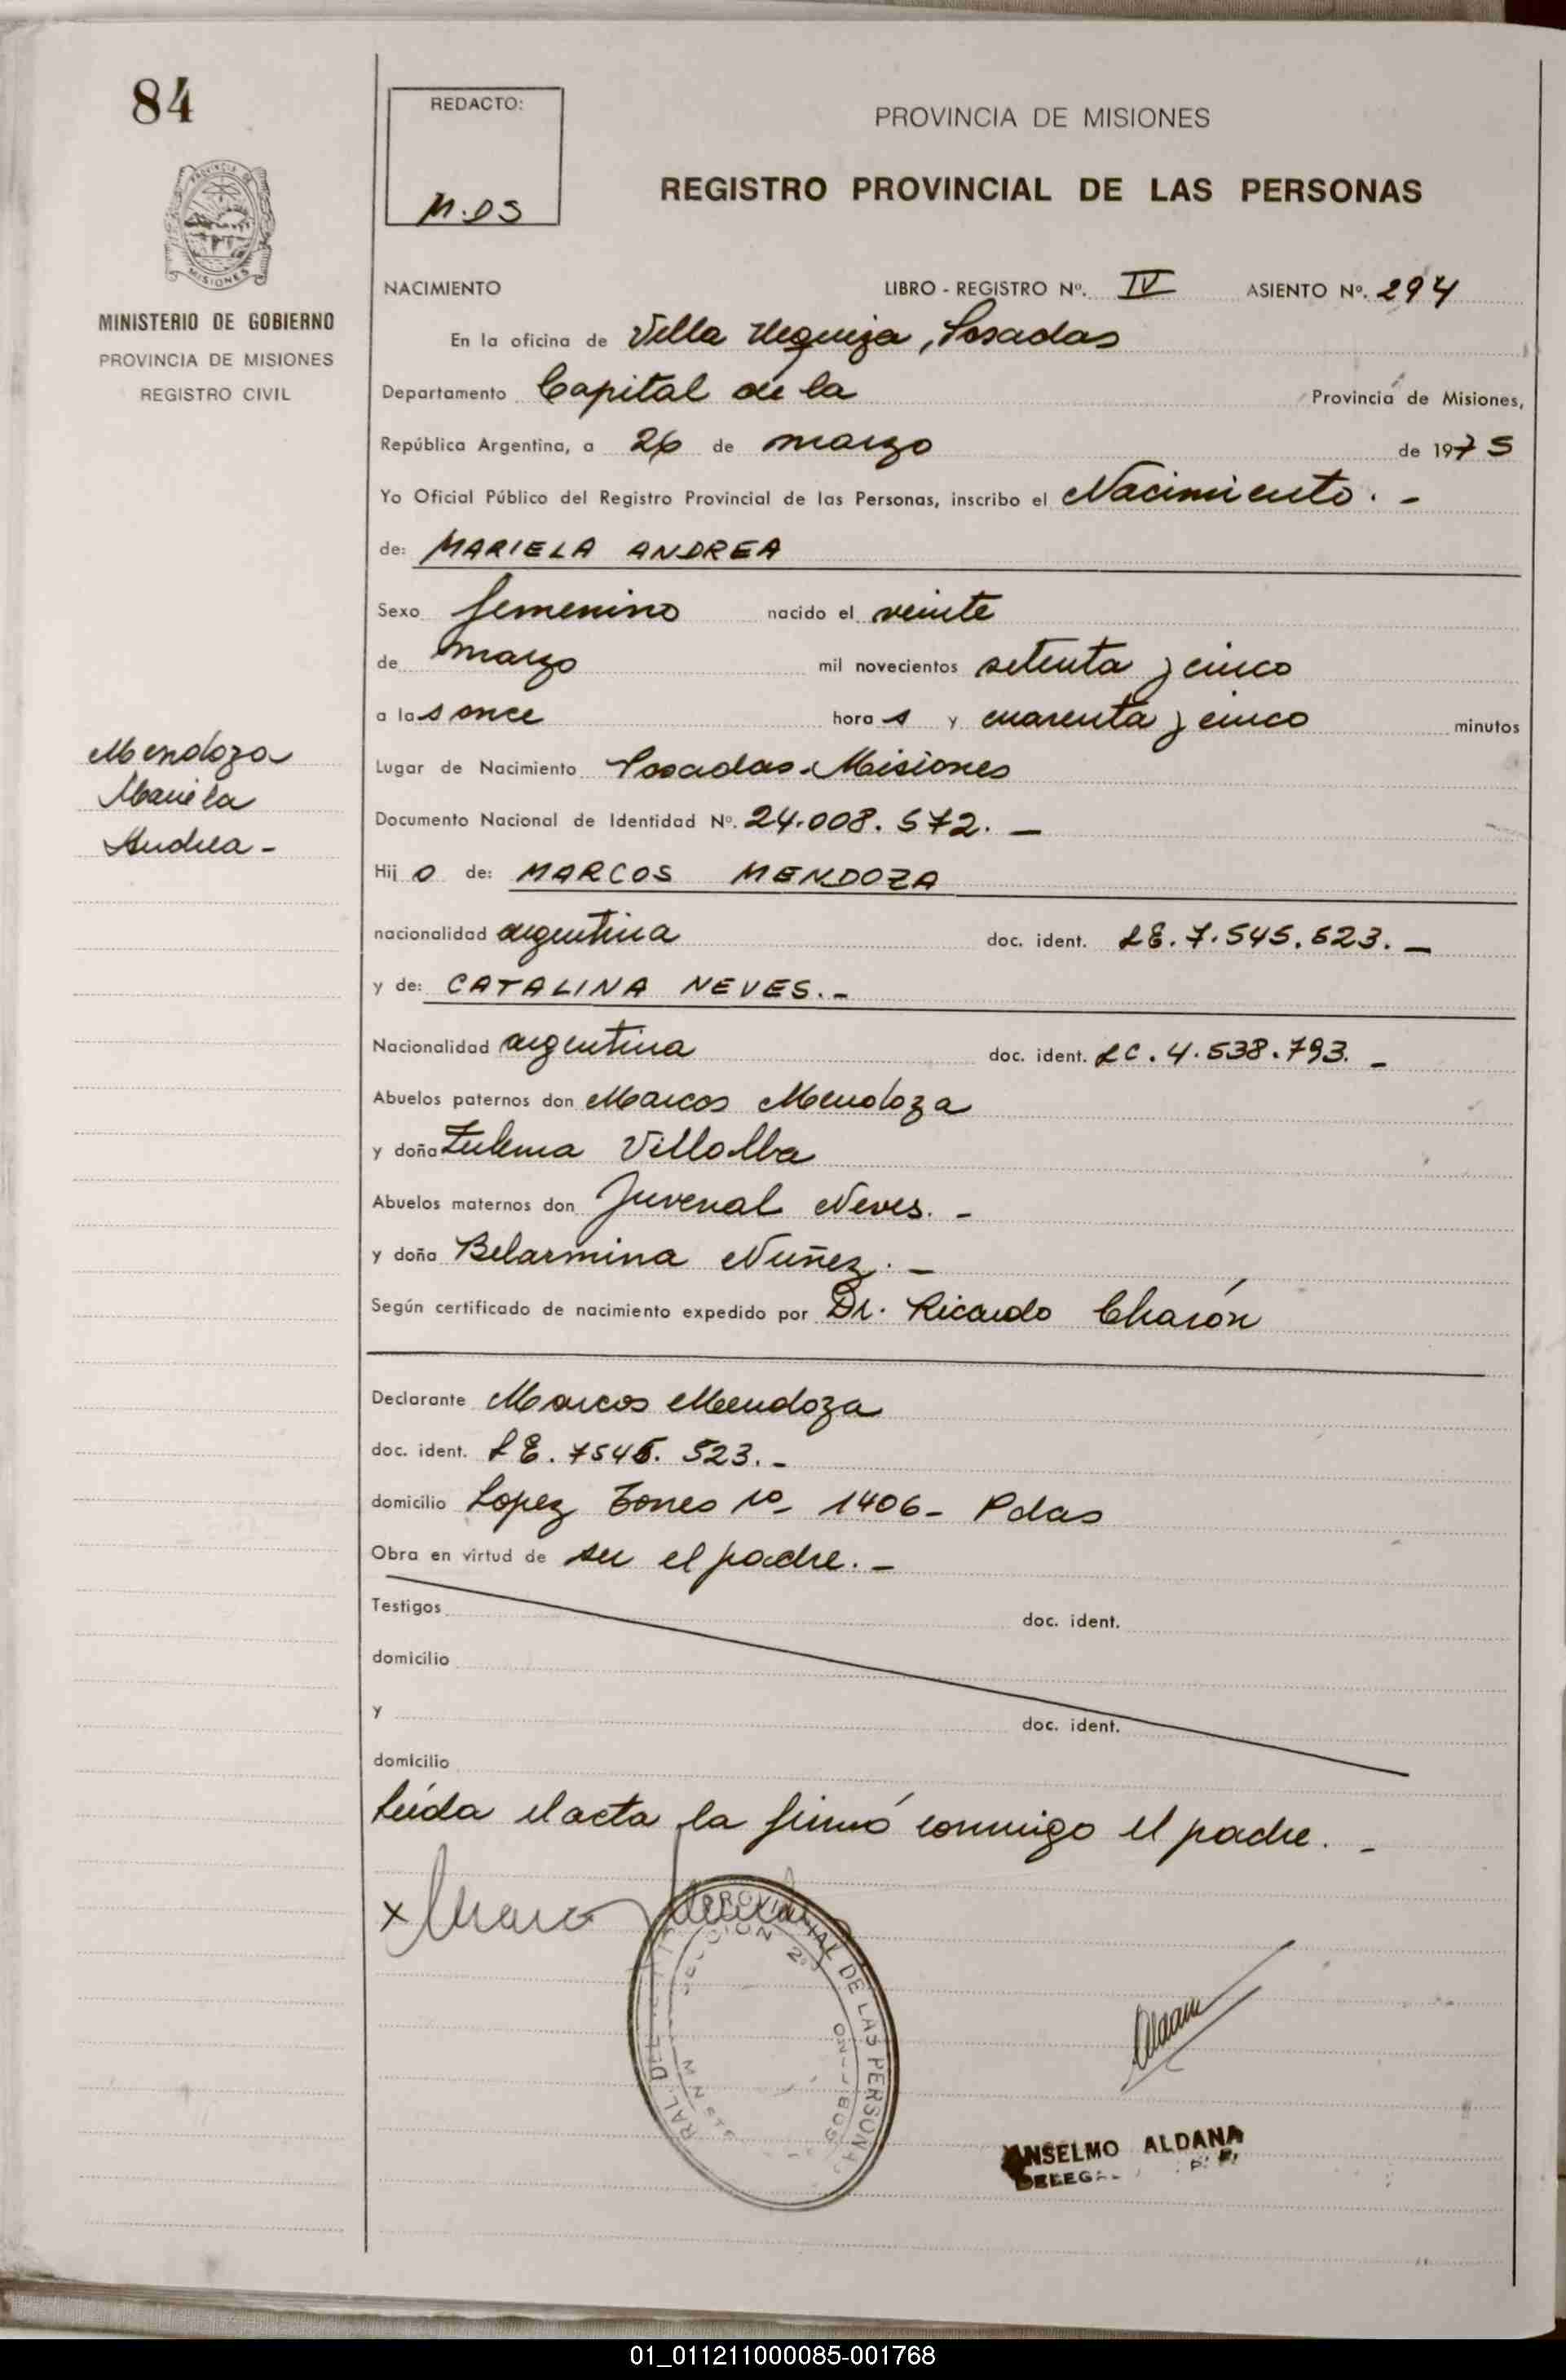 84
REDACTO:
M.DS
PROVINCIA DE MISIONES
REGISTRO PROVINCIAL DE LAS PERSONAS
PROVINCIA DE
MISIONES
MINISTERIO DE GOBIERNO
PROVINCIA DE MISIONES
REGISTRO CIVIL
NACIMIENTO LIBRO - REGISTRO Nº. IV ASIENTO Nº. 294
En la oficina de Villa Urquiza, Posadas
Departamento Capital de la Provincia de Misiones,
República Argentina, a 26 de marzo de 1975
Yo Oficial Público del Registro Provincial de las Personas, inscribo el Nacimiento. -
de: MARIELA ANDREA
Sexo femenino nacido el veinte
de marzo mil novecientos setenta y cinco
a las once horas y cuarenta y cinco minutos
Mendoza
Mariela
Andrea -
Lugar de Nacimiento Posadas - Misiones
Documento Nacional de Identidad Nº. 24.008.572. -
Hijo de: MARCOS MENDOZA
nacionalidad argentina doc. ident. LE. 7.545.523. -
y de: CATALINA NEVES. -
Nacionalidad argentina doc. ident. LC. 4.538.793. -
Abuelos paternos don Marcos Mendoza
y doña Zulema Villalba
Abuelos maternos don Juvenal Neves. -
y doña Belarmina Nuñez. -
Según certificado de nacimiento expedido por Dr. Ricardo Charón
Declarante Marcos Mendoza
doc. ident. LE. 7545. 523. -
domicilio Lopez Torres nº 1406 - Pdas
Obra en virtud de ser el padre. -
Testigos doc. ident.
domicilio
y doc. ident.
domicilio
Leída el acta la firmó conmigo el padre. -
x
PROVINCIAL DE LAS PERSONAS
ANSELMO ALDANA
01_011211000085-001768